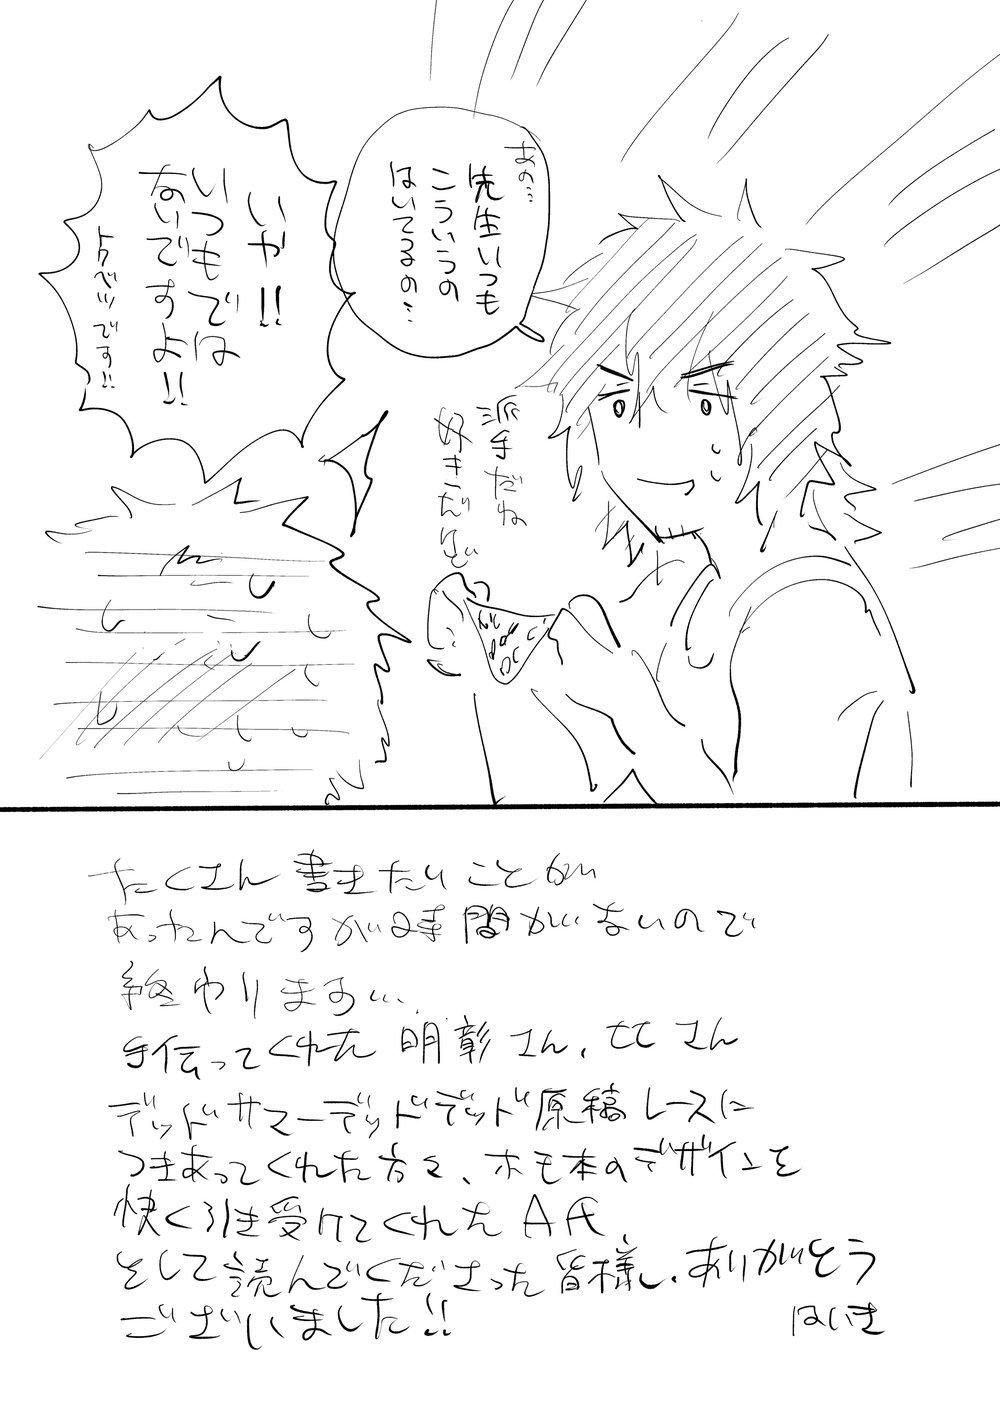 あの…
先生いつも
こういうの
はいてるの…
いや!!
いつもでは
ないですよ!!
トクベツです!!
派手だね
好きだけど
たくさん書きたいことが
あったんですが時間がないので
終わります…
手伝ってくれた明彰さん、ヒヒさん
デッドサマーデッドデッド原稿レースに
つきあってくれた方々、ホモ本のデザインを
快く引き受けてくれたAA、
そして読んでくださった皆様も、ありがとう
ございました!!
はいき